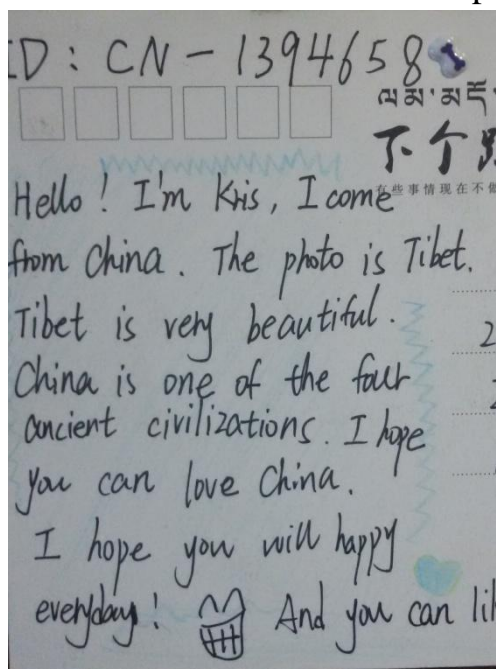 ID: CN-1394658
ལམ་མདོ་
下个路
有些事情现在不做
Hello! I'm Kris, I come
from China. The photo is Tibet.
Tibet is very beautiful.
China is one of the four
ancient civilizations. I hope
you can love China.
I hope you will happy
everyday! And you can lik